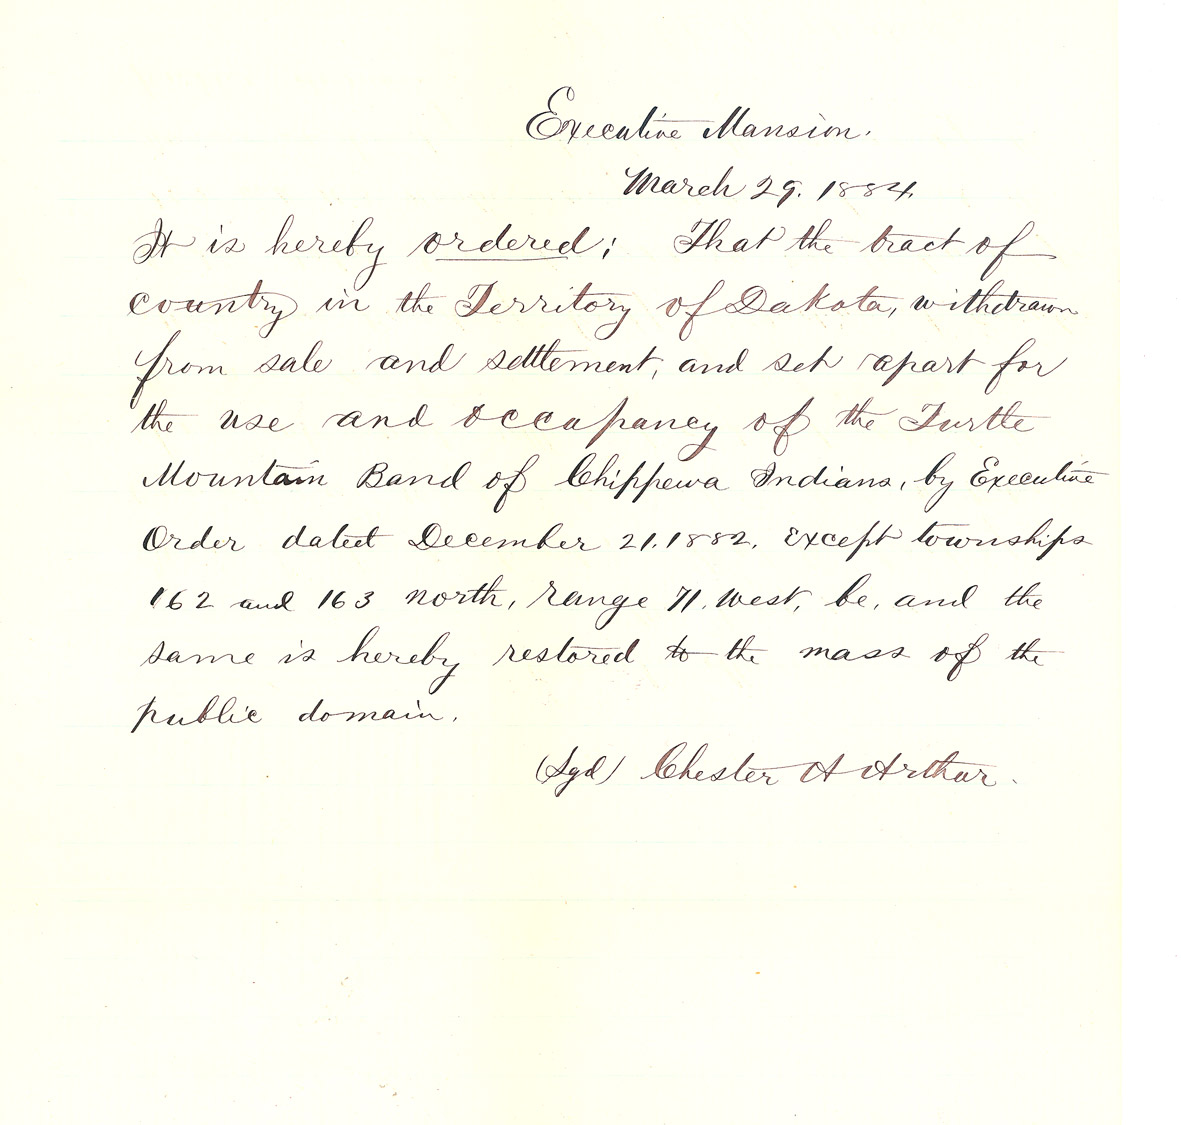 Executive Mansion.
March 29. 1884.
It is hereby ordered; That the tract of
country in the Territory of Dakota, withdrawn
from sale and settlement, and set apart for
the use and occupancy of the Turtle
Mountain Band of Chippewa Indians, by Executive
Order dated December 21. 1882. except townships
162 and 163 north, range 71. west, be, and the
same is hereby restored to the mass of the
public domain.
(Sgd) Chester A Arthur.